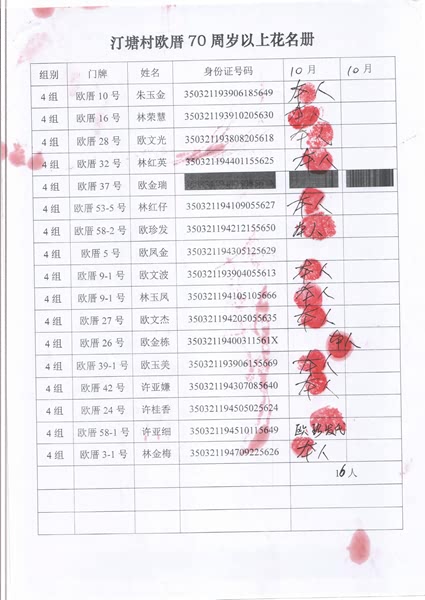 汀塘村欧厝 70 周岁以上花名册
组别 门牌 姓名 身份证号码 10月 10月
4 组 欧厝 10 号 朱玉金 350321193906185649 本人
4 组 欧厝 16 号 林荣慧 350321193910205630
4 组 欧厝 28 号 欧文光 350321193808205618
4 组 欧厝 32 号 林红英 350321194401155625 本人
4 组 欧厝 37 号 欧金瑞
4 组 欧厝 53-5 号 林红仔 350321194109055627 本人
4 组 欧厝 58-2 号 欧珍发 350321194212115650 本人
4 组 欧厝 5 号 欧凤金 350321194305125629
4 组 欧厝 9-1 号 欧文波 350321193904055613 本人
4 组 欧厝 9-1 号 林玉凤 350321194105105666 本人
4 组 欧厝 27 号 欧文杰 350321194205055635 本人
4 组 欧厝 26 号 欧金栋 35032119400311561X 本人
4 组 欧厝 39-1 号 欧玉美 350321193906155669 本人
4 组 欧厝 42 号 许亚嫌 350321194307085640 本人
4 组 欧厝 24 号 许桂香 350321194505025624
4 组 欧厝 58-1 号 许亚细 350321194510115649
4 组 欧厝 3-1 号 林金梅 350321194709225626 本人
16人